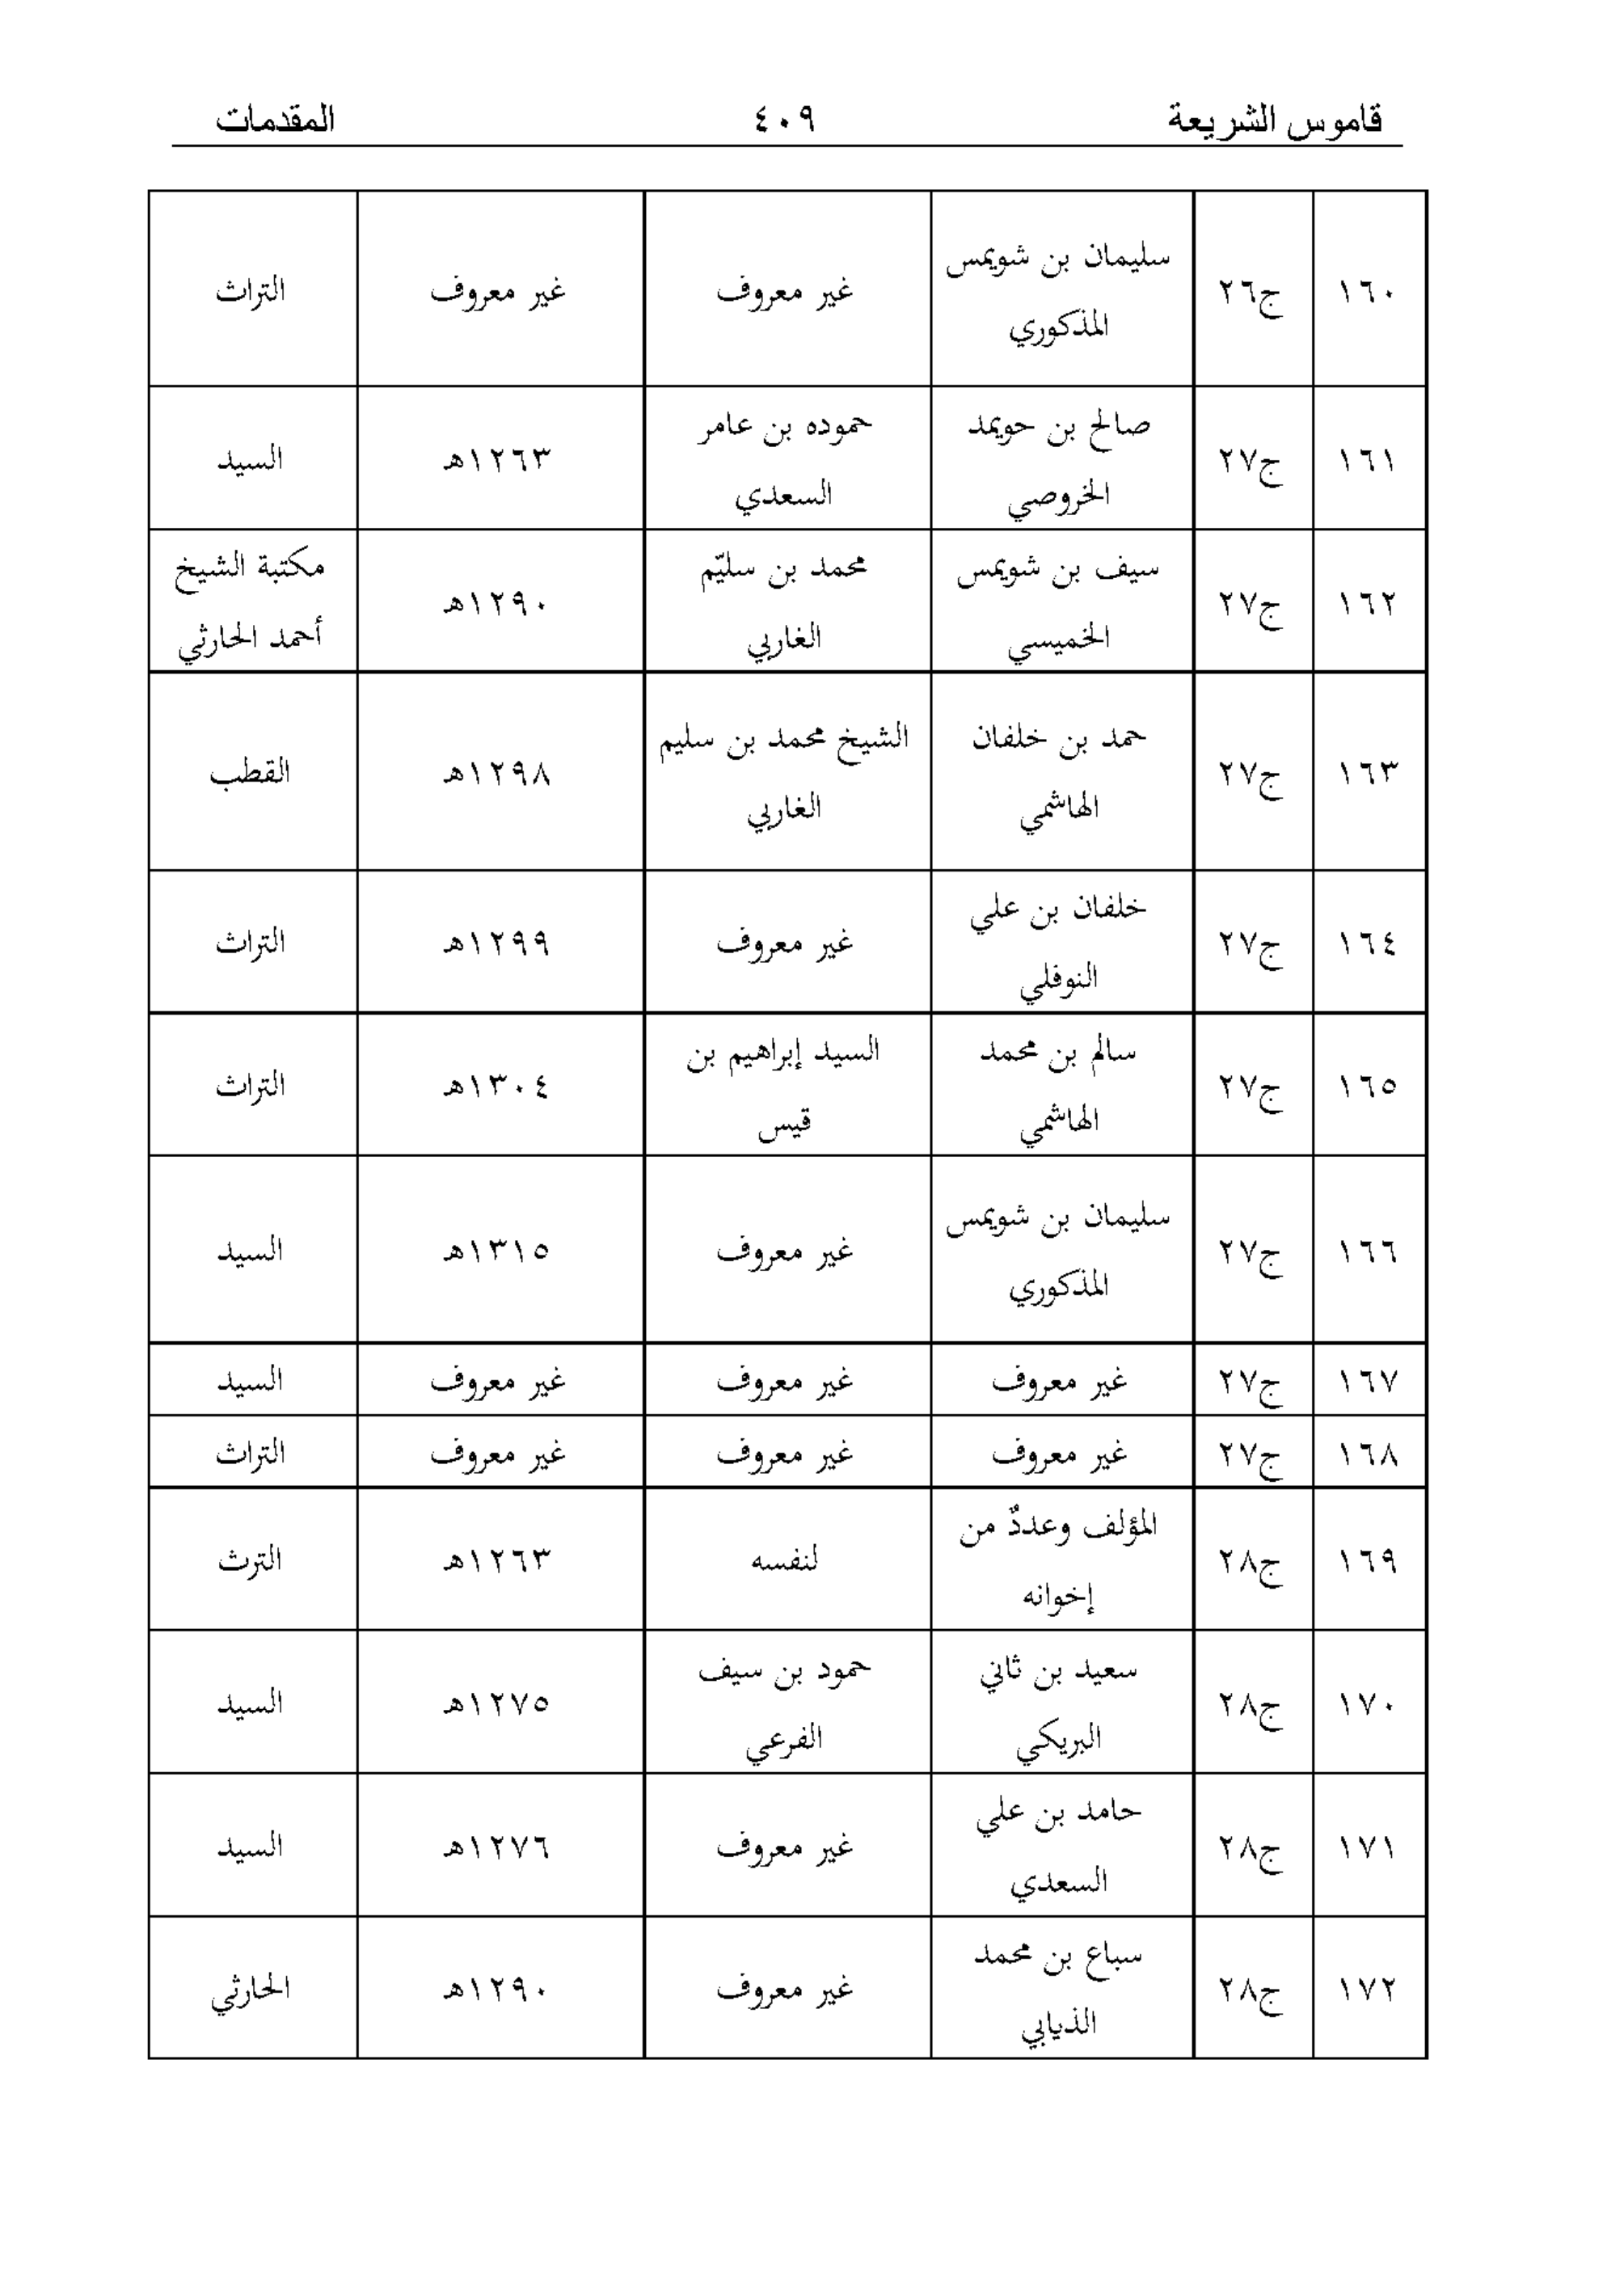 قاموس الشريعة ٤٠٩ المقدمات
١٦٠ ج٢٦ سليمان بن شويمس المذكوري غير معروف غير معروف التراث
١٦١ ج٢٧ صالح بن حويمد الخروصي حموده بن عامر السعدي ١٢٦٣هـ السيد
١٦٢ ج٢٧ سيف بن شويمس الخميسي محمد بن سليّم الغاربي ١٢٩٠هـ مكتبة الشيخ أحمد الحارثي
١٦٣ ج٢٧ حمد بن خلفان الهاشمي الشيخ محمد بن سليم الغاربي ١٢٩٨هـ القطب
١٦٤ ج٢٧ خلفان بن علي النوفلي غير معروف ١٢٩٩هـ التراث
١٦٥ ج٢٧ سالم بن محمد الهاشمي السيد إبراهيم بن قيس ١٣٠٤هـ التراث
١٦٦ ج٢٧ سليمان بن شويمس المذكوري غير معروف ١٣١٥هـ السيد
١٦٧ ج٢٧ غير معروف غير معروف غير معروف السيد
١٦٨ ج٢٧ غير معروف غير معروف غير معروف التراث
١٦٩ ج٢٨ المؤلف وعددٌ من إخوانه لنفسه ١٢٦٣هـ الترث
١٧٠ ج٢٨ سعيد بن ثاني البريكي حمود بن سيف الفرعي ١٢٧٥هـ السيد
١٧١ ج٢٨ حامد بن علي السعدي غير معروف ١٢٧٦هـ السيد
١٧٢ ج٢٨ سباع بن محمد الذيابي غير معروف ١٢٩٠هـ الحارثي